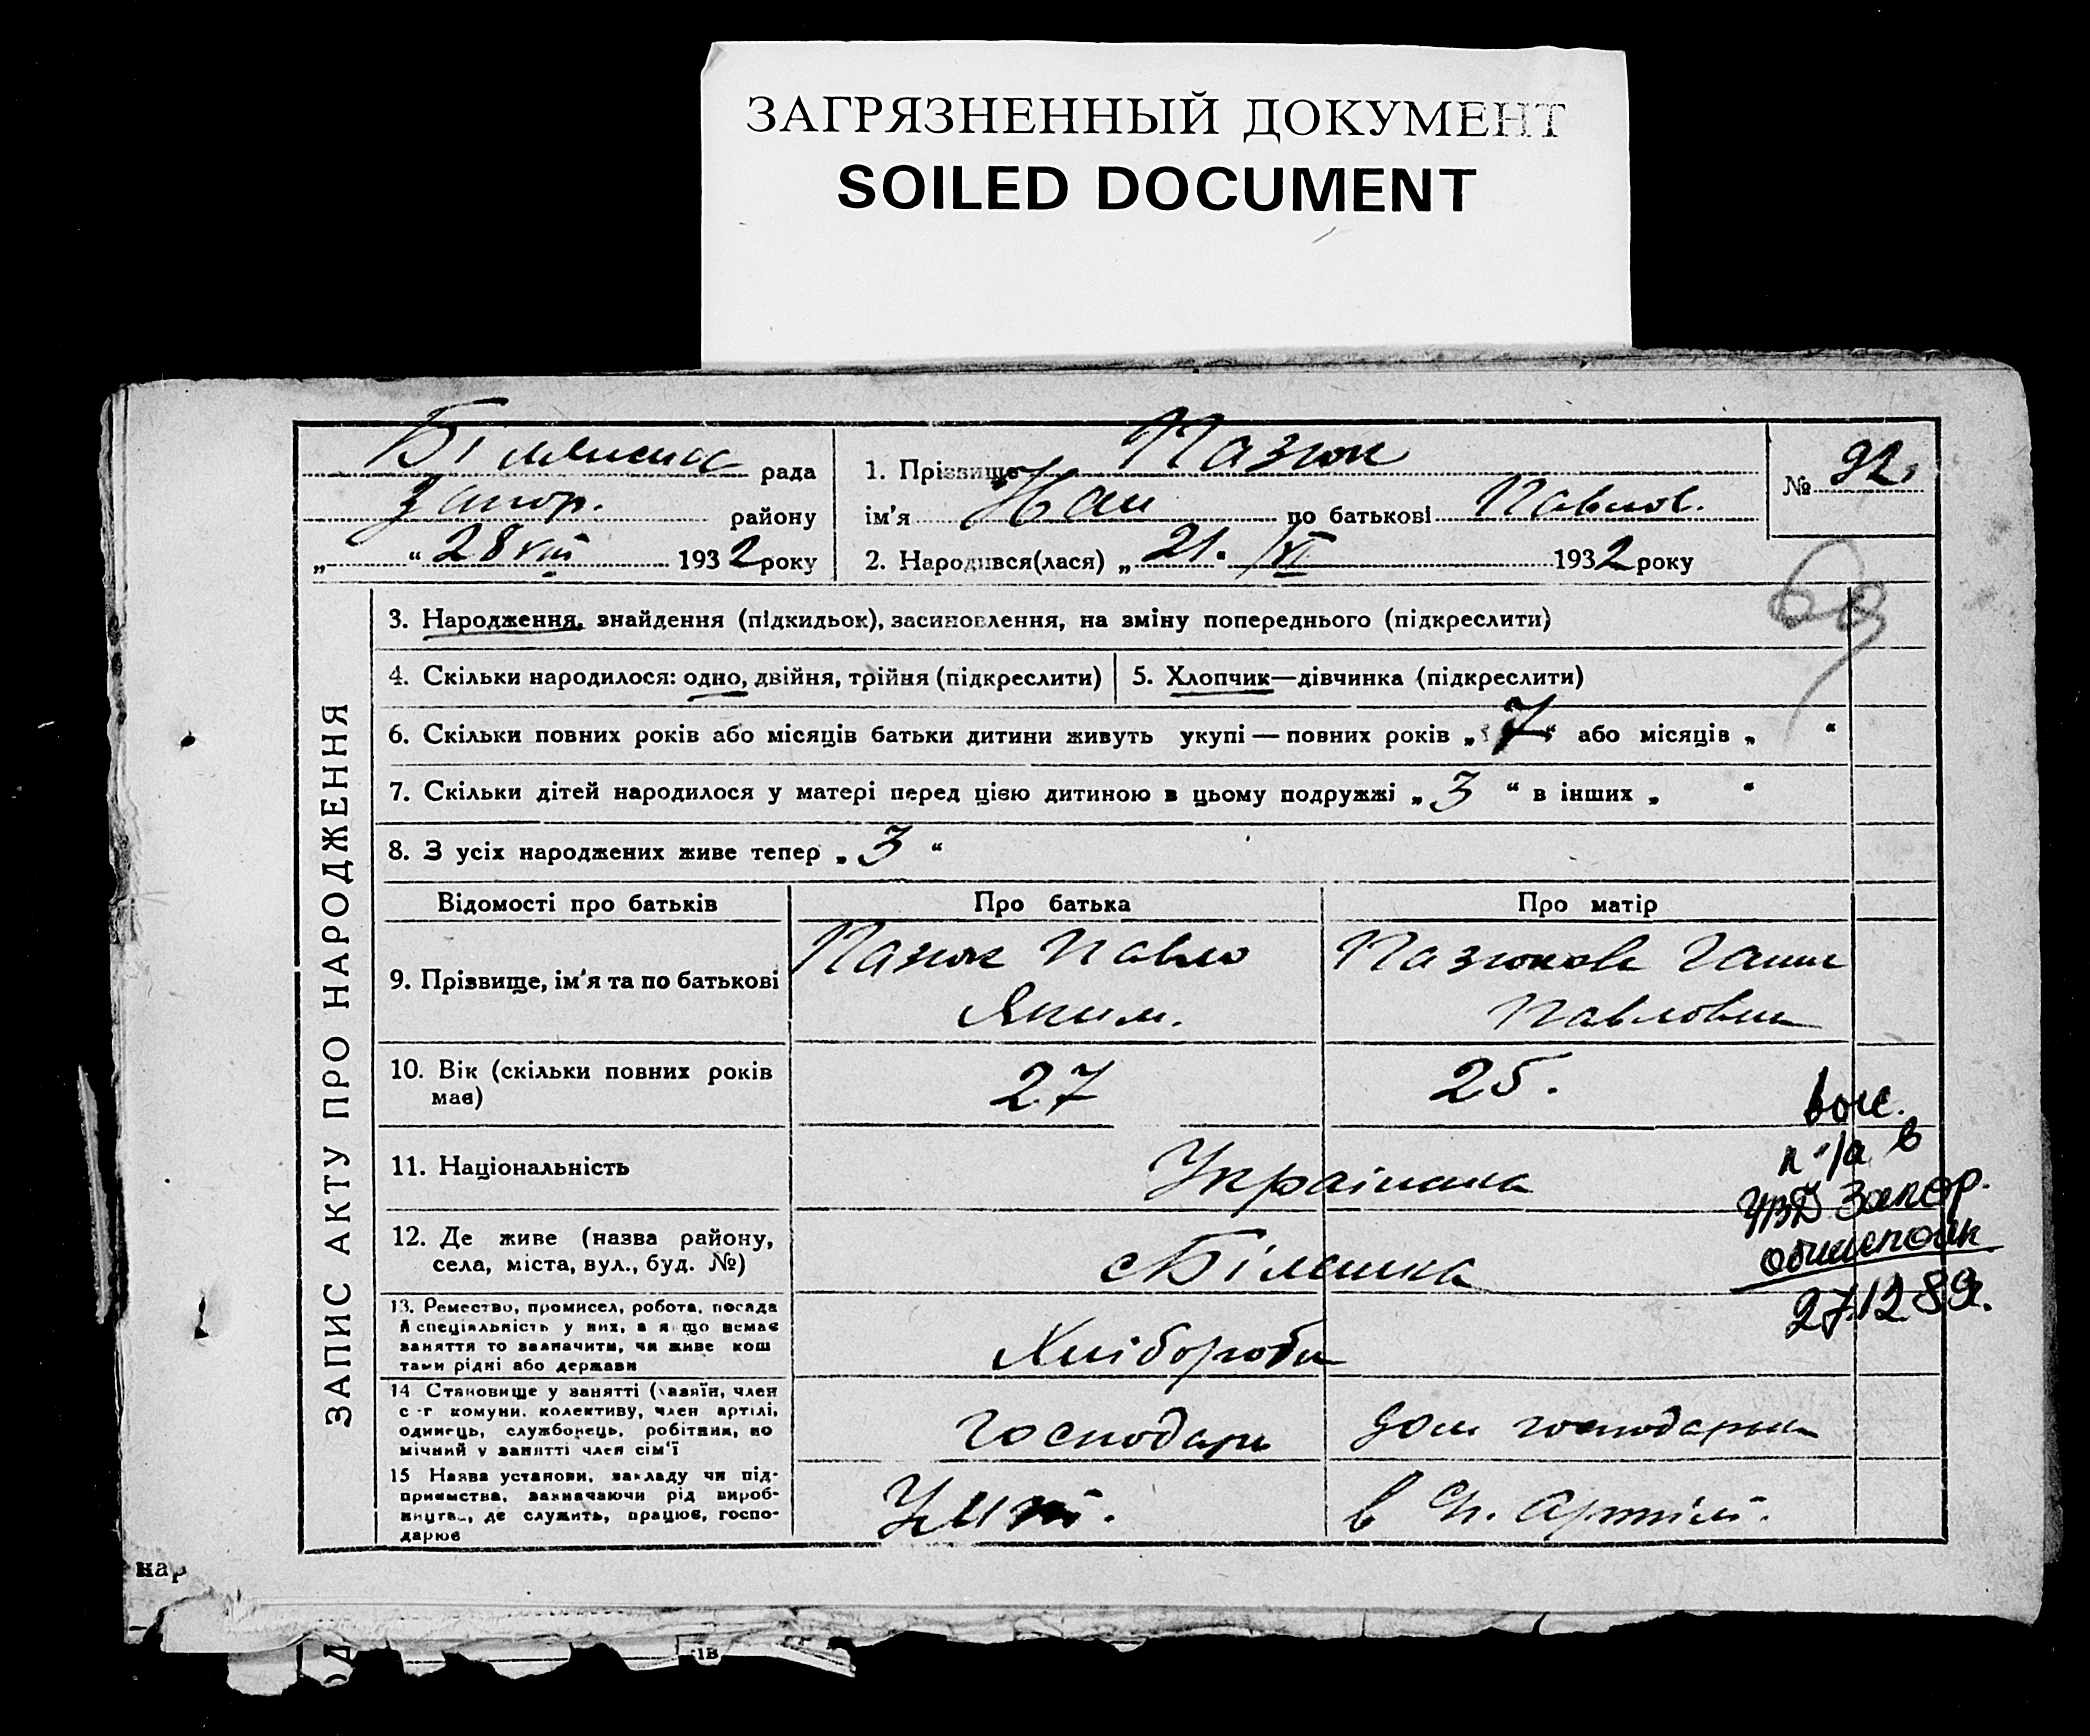 ЗАГРЯЗНЕННЫЙ ДОКУМЕНТ
SOILED DOCUMENT
рада
Запор. району
„ “ 28 VIII 1932 року
1. Прізвище Пазюк
ім'я по батькові Павлов.
2. Народився(лася) „ 21. VI 1932 року
№ 92.
ЗАПИС АКТУ ПРО НАРОДЖЕННЯ
3. Народження, знайдення (підкидьок), засиновлення, на зміну попереднього (підкреслити)
4. Скільки народилося: одно, двійня, трійня (підкреслити)
5. Хлопчик—дівчинка (підкреслити)
6. Скільки повних років або місяців батьки дитини живуть укупі — повних років „ 7 “ або місяців „ “
7. Скільки дітей народилося у матері перед цією дитиною в цьому подружжі „ 3 “ в інших „ “
8. З усіх народжених живе тепер „ 3 “
Відомості про батьків
Про батька
Про матір
9. Прізвище, ім'я та по батькові
Пазюк Павло
Яким.
Пазюкова Ганна
Павловна
10. Вік (скільки повних років має)
27
25.
11. Національність
12. Де живе (назва району,
села, міста, вул., буд. №)
с Біленька
13. Ремество, промисел, робота, посада
й спеціяльність у них, а якщо немає
заняття то зазначити, чи живе кош
тами рідні або держави
Хлібороби
14 Становище у занятті (хазяїн, член
с-г комуни, колективу, член артілі,
одинець, службовець, робітник, по
мічний у занятті член сім'ї
господарь
дом господарка
15 Назва установи, закладу чи під-
приємства, зазначаючи рід вироб-
ництва, де служить, працює, госпо-
дарює
в артілі.
п. /а в
УВД Запор.
облисполк
27.12 89г.
нар
ів